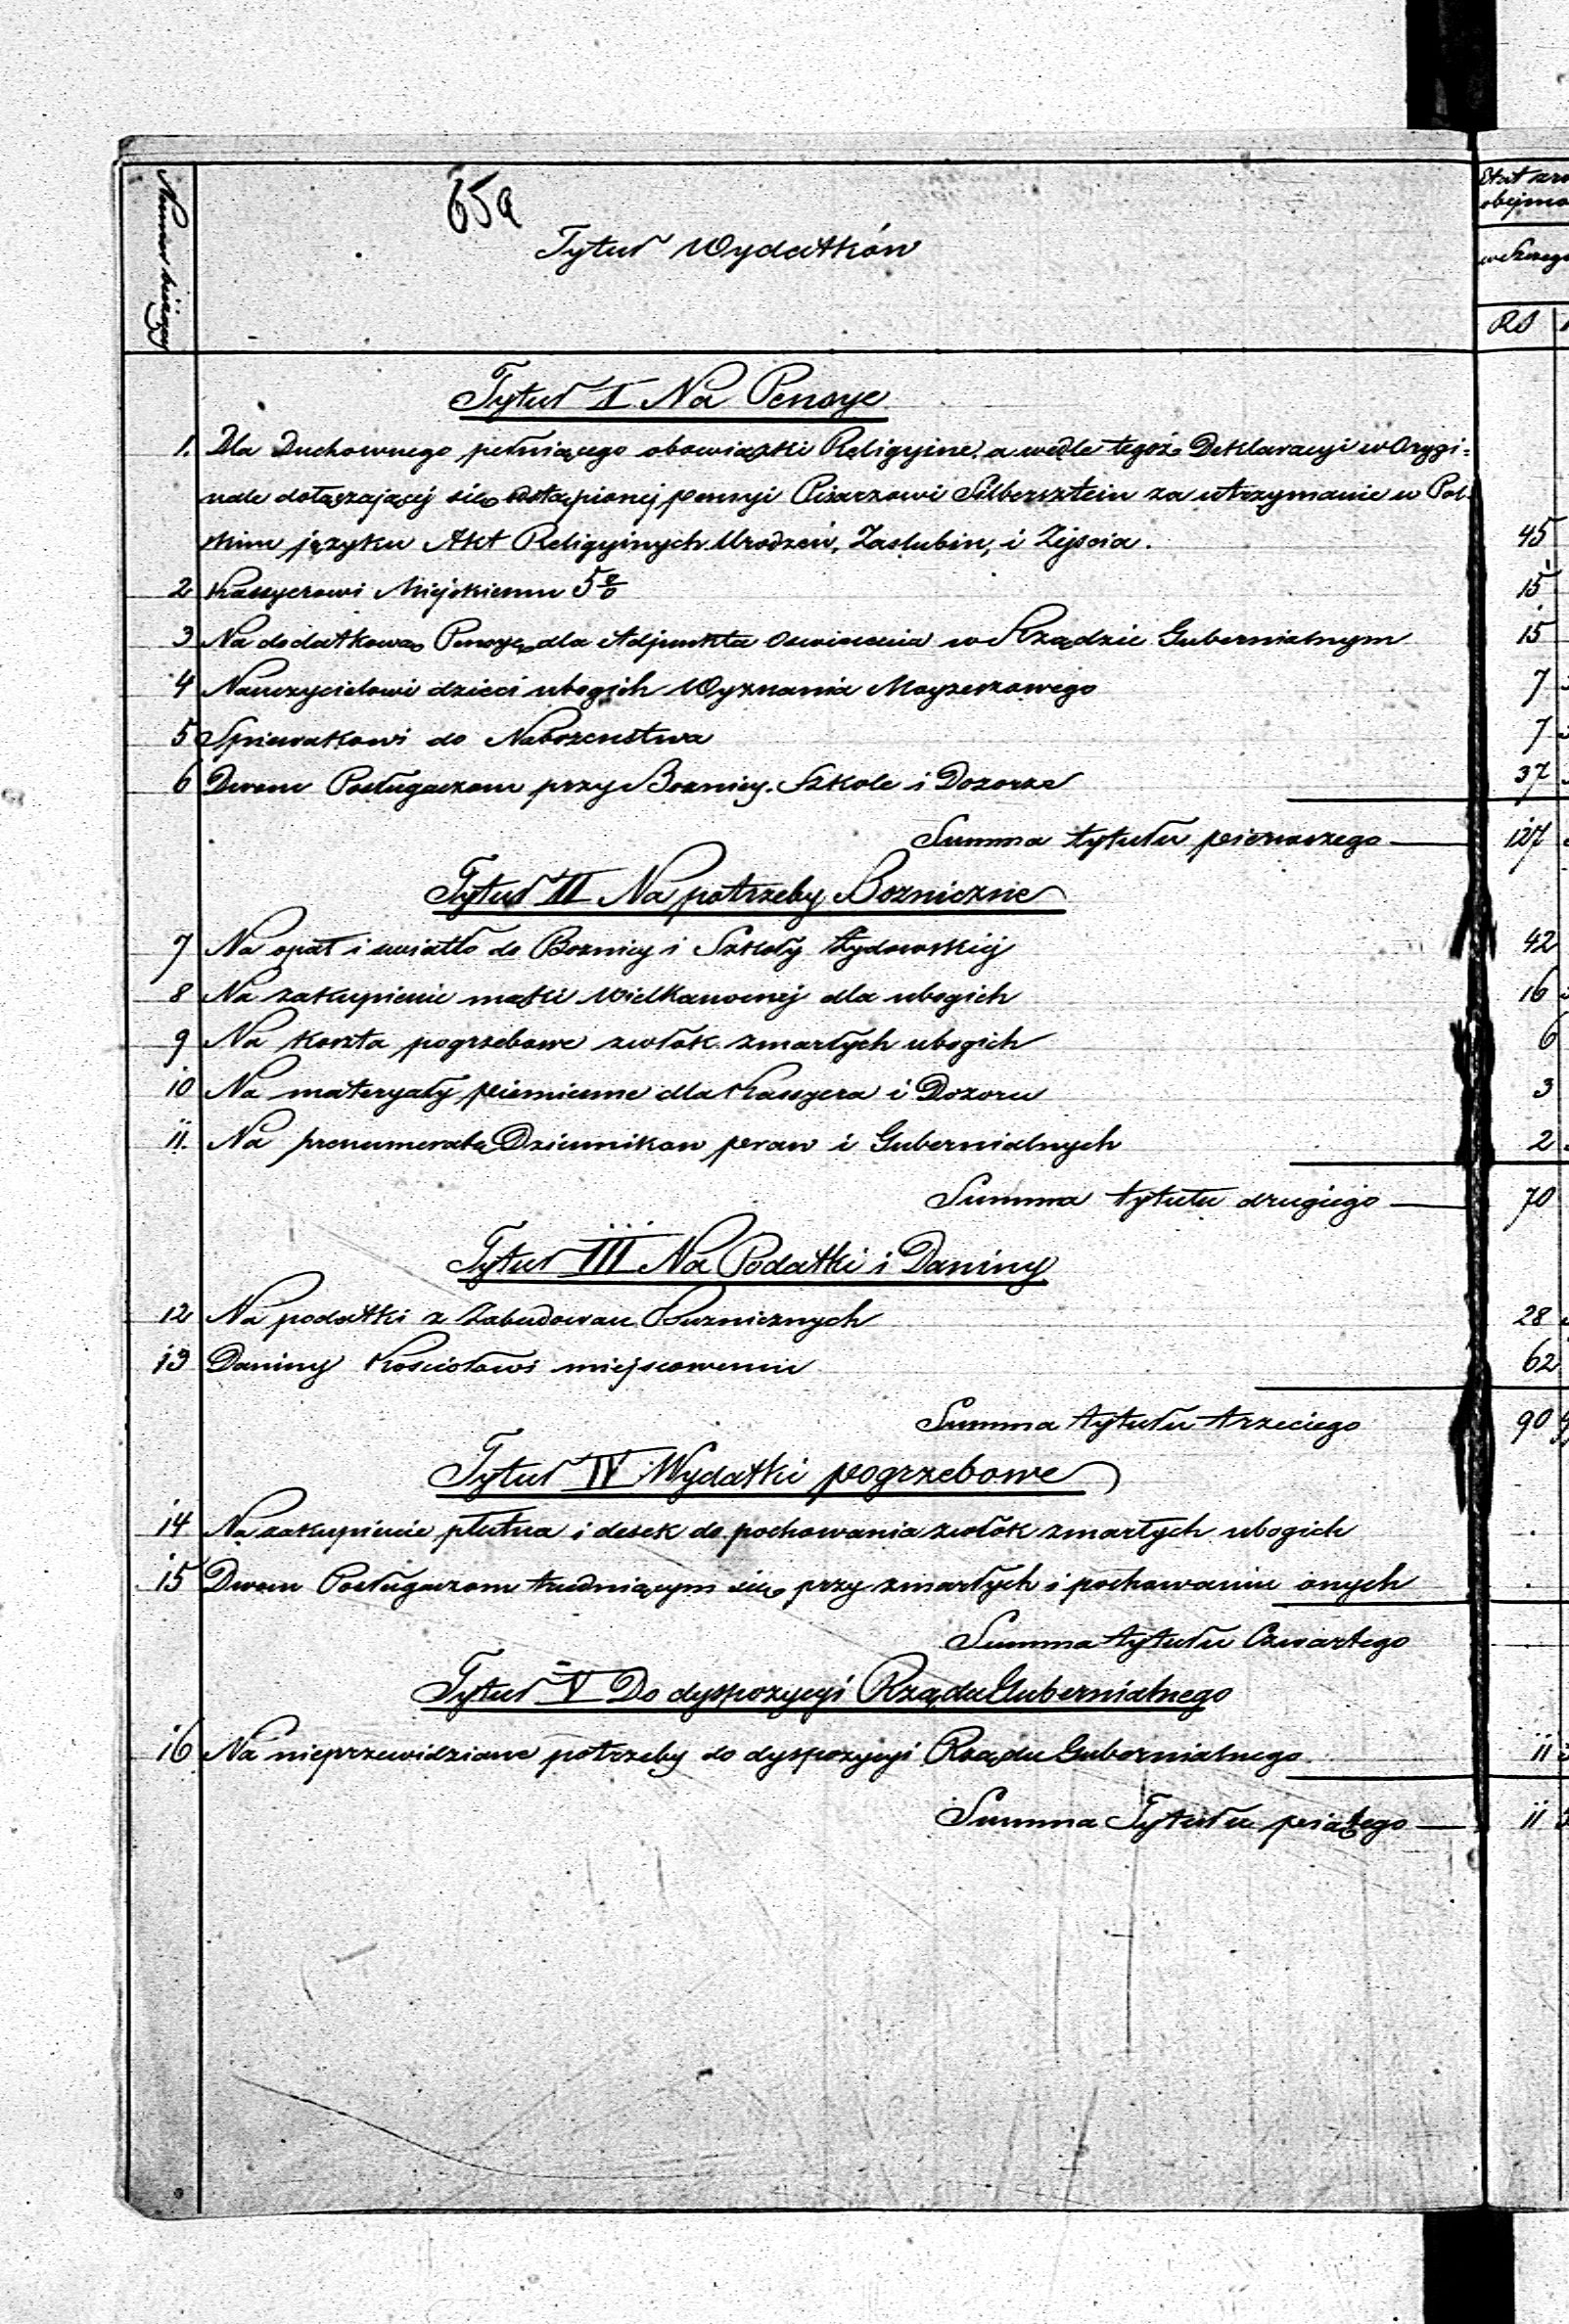 65a
Numer bieżący
Tytuł Wydatków
Etat
obejmu
w Szczegó
RS
Tytuł I Na Pensye
1. Dla Duchownego pełniącego obowiązki Religyine, a wedle tegoż Deklaracyi w Orygi=
nale dołączającej się odstąpionej pensyi Pisarzowi Silbersztein za utrzymanie w Pol=
skim języku Akt Religyinych Urodzeń, Zaslubin, i Zejscia. 45
2 Kassyerowi Miejskiemu 5% 15
3 Na dodatkową Pensyę dla Adjunkta Oswiecenia w Rządzie Gubernialnym 15
4 Nauczycielowi dzieci ubogich Wyznania Mojzeszowego 7
5 Spiewakowi do Nabozenstwa 7
6 Dwom Posługaczom przy Boznicy. Szkole i Dozorze 37
Summa tytułu pierwszego 127
Tytuł II Na potrzeby Bozniczne
7 Na opał i swiatło do Boznicy i Szkoły Żydowskiej 42
8 Na zakupienie maki Wielkanocnej dla ubogich 16
9 Na koszta pogrzebowe zwłok zmarłych ubogich 6
10 Na materyały pismienne dla Kassyera i Dozoru 3
11. Na prenumeratę Dziennikow praw i Gubernialnych 2
Summa tytutu drugiego 70
Tytuł III Na Podatki i Daniny
12 Na podatki z Zabudowan Buznicznych 28
13 Daniny Kosciołowi miejscowemu 62
Summa tytułu trzeciego 90
Tytuł IV Wydatki pogrzebowe
14 Na zakupienie płutna i desek do pochowania zwłok zmarłych ubogich
15 Dwom Posługaczom trudniącym się przy zmarłych i pochowaniu onych
Summa tytułu Czwartego
Tytuł V Do dyspozycyi Rządu Gubernialnego
16 Na nieprzewidziane potrzeby do dyspozycyi Rządu Gubernialnego 11
Summa Tytułu piątego 11